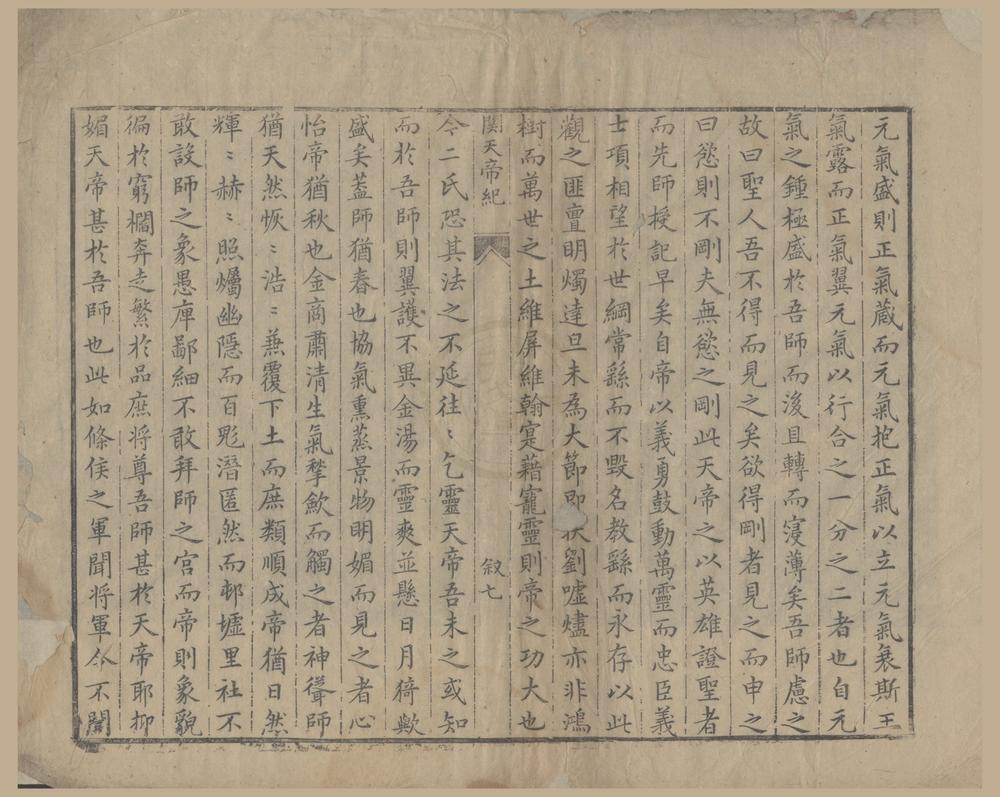 元氣盛則正氣蔵而元氣抱正氣以立元氣衰斯正
氣露而正氣翼元氣以行合之一分之二者也自元
氣之鍾極盛於吾師而浚且轉而寖薄矣吾師慮之
故曰聖人吾不得而見之矣欲得剛者見之而申之
曰慾則不剛夫無慾之剛此天帝之以英雄證聖者
而先師授記早矣自帝以義勇鼓動萬靈而忠臣義
士項相望於世綱常繇而不毀名教繇而永存以此
觀之匪亶明燭達旦未為大節即劉噓燼亦非鴻
樹而萬世之土維屏維翰寔藉寵靈則帝之功大也
関天帝紀 叙 七
今二氏恐其法之不延往〻乞靈天帝吾未之或知
而於吾師則翼護不異金湯而靈爽並懸日月猗歟
盛矣蓋師猶春也協氣熏蒸景物明媚而見之者心
怡帝猶秋也金商肅清生氣揫歛而觸之者神聳師
猶天然恢〻浩〻兼覆下土而庶類順成帝猶日然
輝〻赫〻照爥幽隱而百鬽潛匿然而邨墟里社不
敢設師之象愚庳鄙細不敢拜師之宮而帝則象貌
徧於窮櫩奔走繁於品庶将尊吾師甚於天帝耶抑
媚天帝甚於吾師也此如條侯之軍聞將軍令不聞